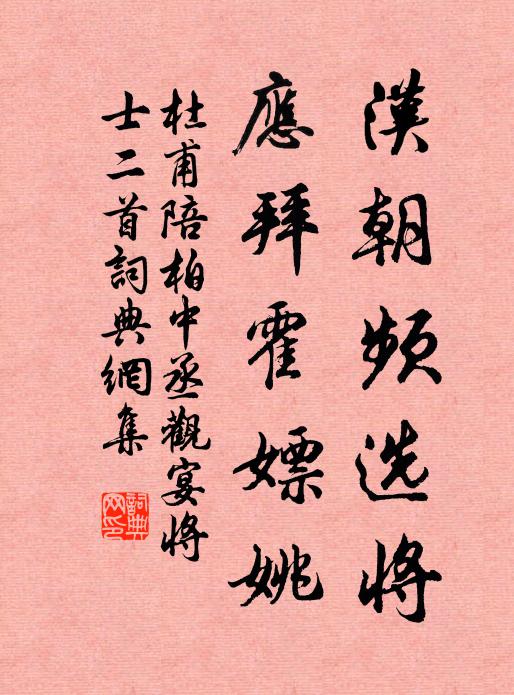 漢朝頻选將
應拜霍嫖姚
杜甫陪柏中丞觀宴將
士二首詞典網集
詞典
网印